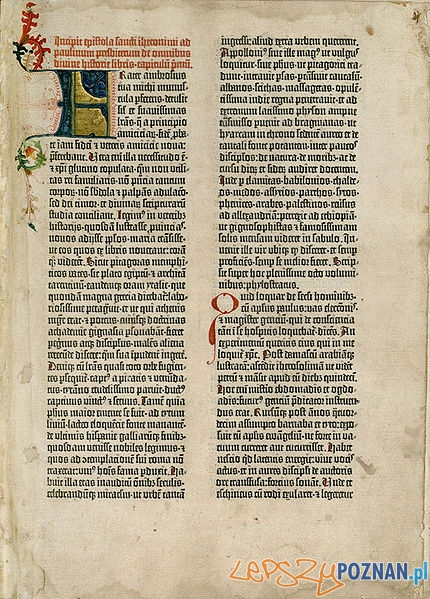 Incipit epistola sancti iheronimi ad
paulinum presbiterum de omnibus
divine historie libris. capitulū pmū.
Frater ambrosius
tua michi munus-
cula pferens. detulit
sit et suavissimas
lrās. q̄ a principio
amicicia℞. fidē pba-
te iam fidei et veteris amicicie nova:
pferebant. Vera eni illa necessitudo ē.
et xpi glutino copulata. qm non utili-
tas rei familiaris. nō pntia tantum
corporum. nō sbdola et palpās adulacō:
sed dei timor. et divina℞ scripturarū
studia conciliant. Legim in veterib
historijs. quosdā lustrasse. pvincias.
novos adijsse pplos. maria trāsisse.
ut eos quos ex libris noverant: corā
q̄ viderēt. Sicut pitagoras memphi-
ticos vates. sic plato egiptū. et architā
tarentinū. eandemq oram ytalie. que
quondam magna grecia dicebat. labo-
riosissime peragravit. et ut qui athenis
mgr erat. et potens. cuiusq doctrinas
achademie gignasia psonabāt. fieret
pegrinus atq discipulus. malens aliena
verecunde discere. qm sua īpudenter ingerere.
Deniq cū lrās quasi toto orbe fugien-
tes psequit. capt a piratis et venunda-
tus. tyranno crudelissimo paruit. duct
captivus vinct et servus. Tamē quia
phus maior emente se fuit. ad tytum
livium. lacteo eloquencie fonte manantē.
de ultimis hispanie galliarūq finib
quosdam venisse nobiles legimus.
et quos ad contemplacionē sui roma nō
traxerat. uni hoīs fama pduxit. Ha-
buit illa etas inauditū omnib seculis.
celebrandumq miraculum. ut urbē tantā
ingressi: aliud extra urbem quererent.
Apolloni sive ille mag ut vulgus
loquitur. sive phus. ut pitagorici tra-
dunt. intravit psas. ptrāsivit caucasū.
albanos. scithas. massagetas. opulē-
tissima indie regna penetravit. et ad
extremum latissimo physon ampne
trāmisso puenit ad bragmanas. ut
hyarcam in throno sedentē aureo et de
tantali fonte potantem. inter paucos
discipulos. de natura. de morib. ac de
cursu diez et sidez audiret docentem.
Inde p elamitas. babilonios. chalde-
os. medos. assirios. parthos. syros.
phenices. arabes. palestinos. reversus
ad allexandriā. perrexit ad ethiopiā.
ut gignosophistas et famosissimam
solis mensam videret in sabulo. In-
venit ille vir ubiq qd disceret. et semp
proficiēs. semp se melior fieret. Scrip-
sit super hoc plenissime octo volumi-
nibus. phylostratus.
Quid loquar de secli hominib.
cū apostolus paulus. vas electionis.
et magister gencium. qui de consciencia
tanti ī se hospitis loquebat. dicēs. An
experimentū queritis eius qui in me
loquit xpc. Post damascū arabiāq
lustratā: ascēdit iherosolimā ut vide-
ret petrū. et māsit apud eū dieb quindecī.
Hoc enī misterio ebdomadis et ogdo-
adis. futur gencium pdicator instruen-
dus erat. Rursūq post ānos q̄tuor-
decim assumpto barnaba et tyto. expo-
suit cū aplis evāgeliū. ne forte in va-
cuum curreret aut cucurrisset. Habet
nescio qd latentis energie. vive vocis
actus. et in aures discipli de auctoris
ore transfusa. forcius sonat. Unde et
eschineus cū rodi exularet. et legeretur
LEPSZY POZNAN.pl